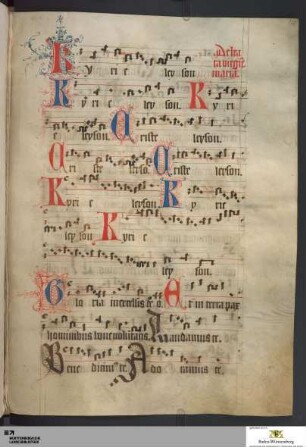 De bea
ta virgine
maria
Kyri e leyson
Kyri e leyson Kyri
e leyson Criste leyson
Criste leyson Criste leyson
Kyri e leyson Kyrie
leyson Kyri e
ley son.
Gloria in excelsis deo Et in terra pax
hominibus bone voluntatis Laudamus te
Bene dicimus te Ado ramus te
WÜRTTEMBERGISCHE
LANDESBIBLIOTHEK
Baden-Württemberg